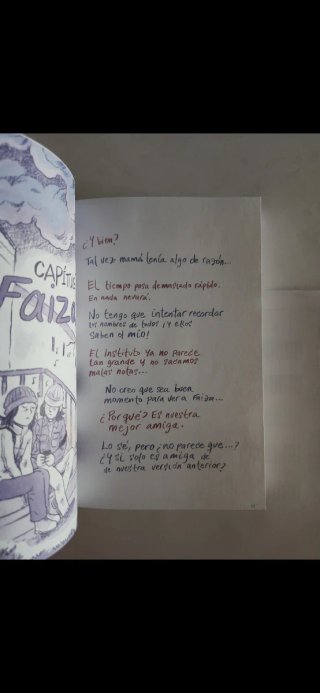 CAPÍTU
Faiza
¿Y bien?
Tal vez mamá tenía algo de razón...
El tiempo pasa demasiado rápido.
En nada nevará.
No tengo que intentar recordar
los nombres de todos ¡y ellos
saben el mío!
El instituto ya no parece
tan grande y no sacamos
malas notas...
No creo que sea buen
momento para ver a Faiza...
¿Por qué? Es nuestra
mejor amiga.
Lo sé, pero ¿no parece que...?
¿Y si solo es amiga de
de nuestra versión anterior?